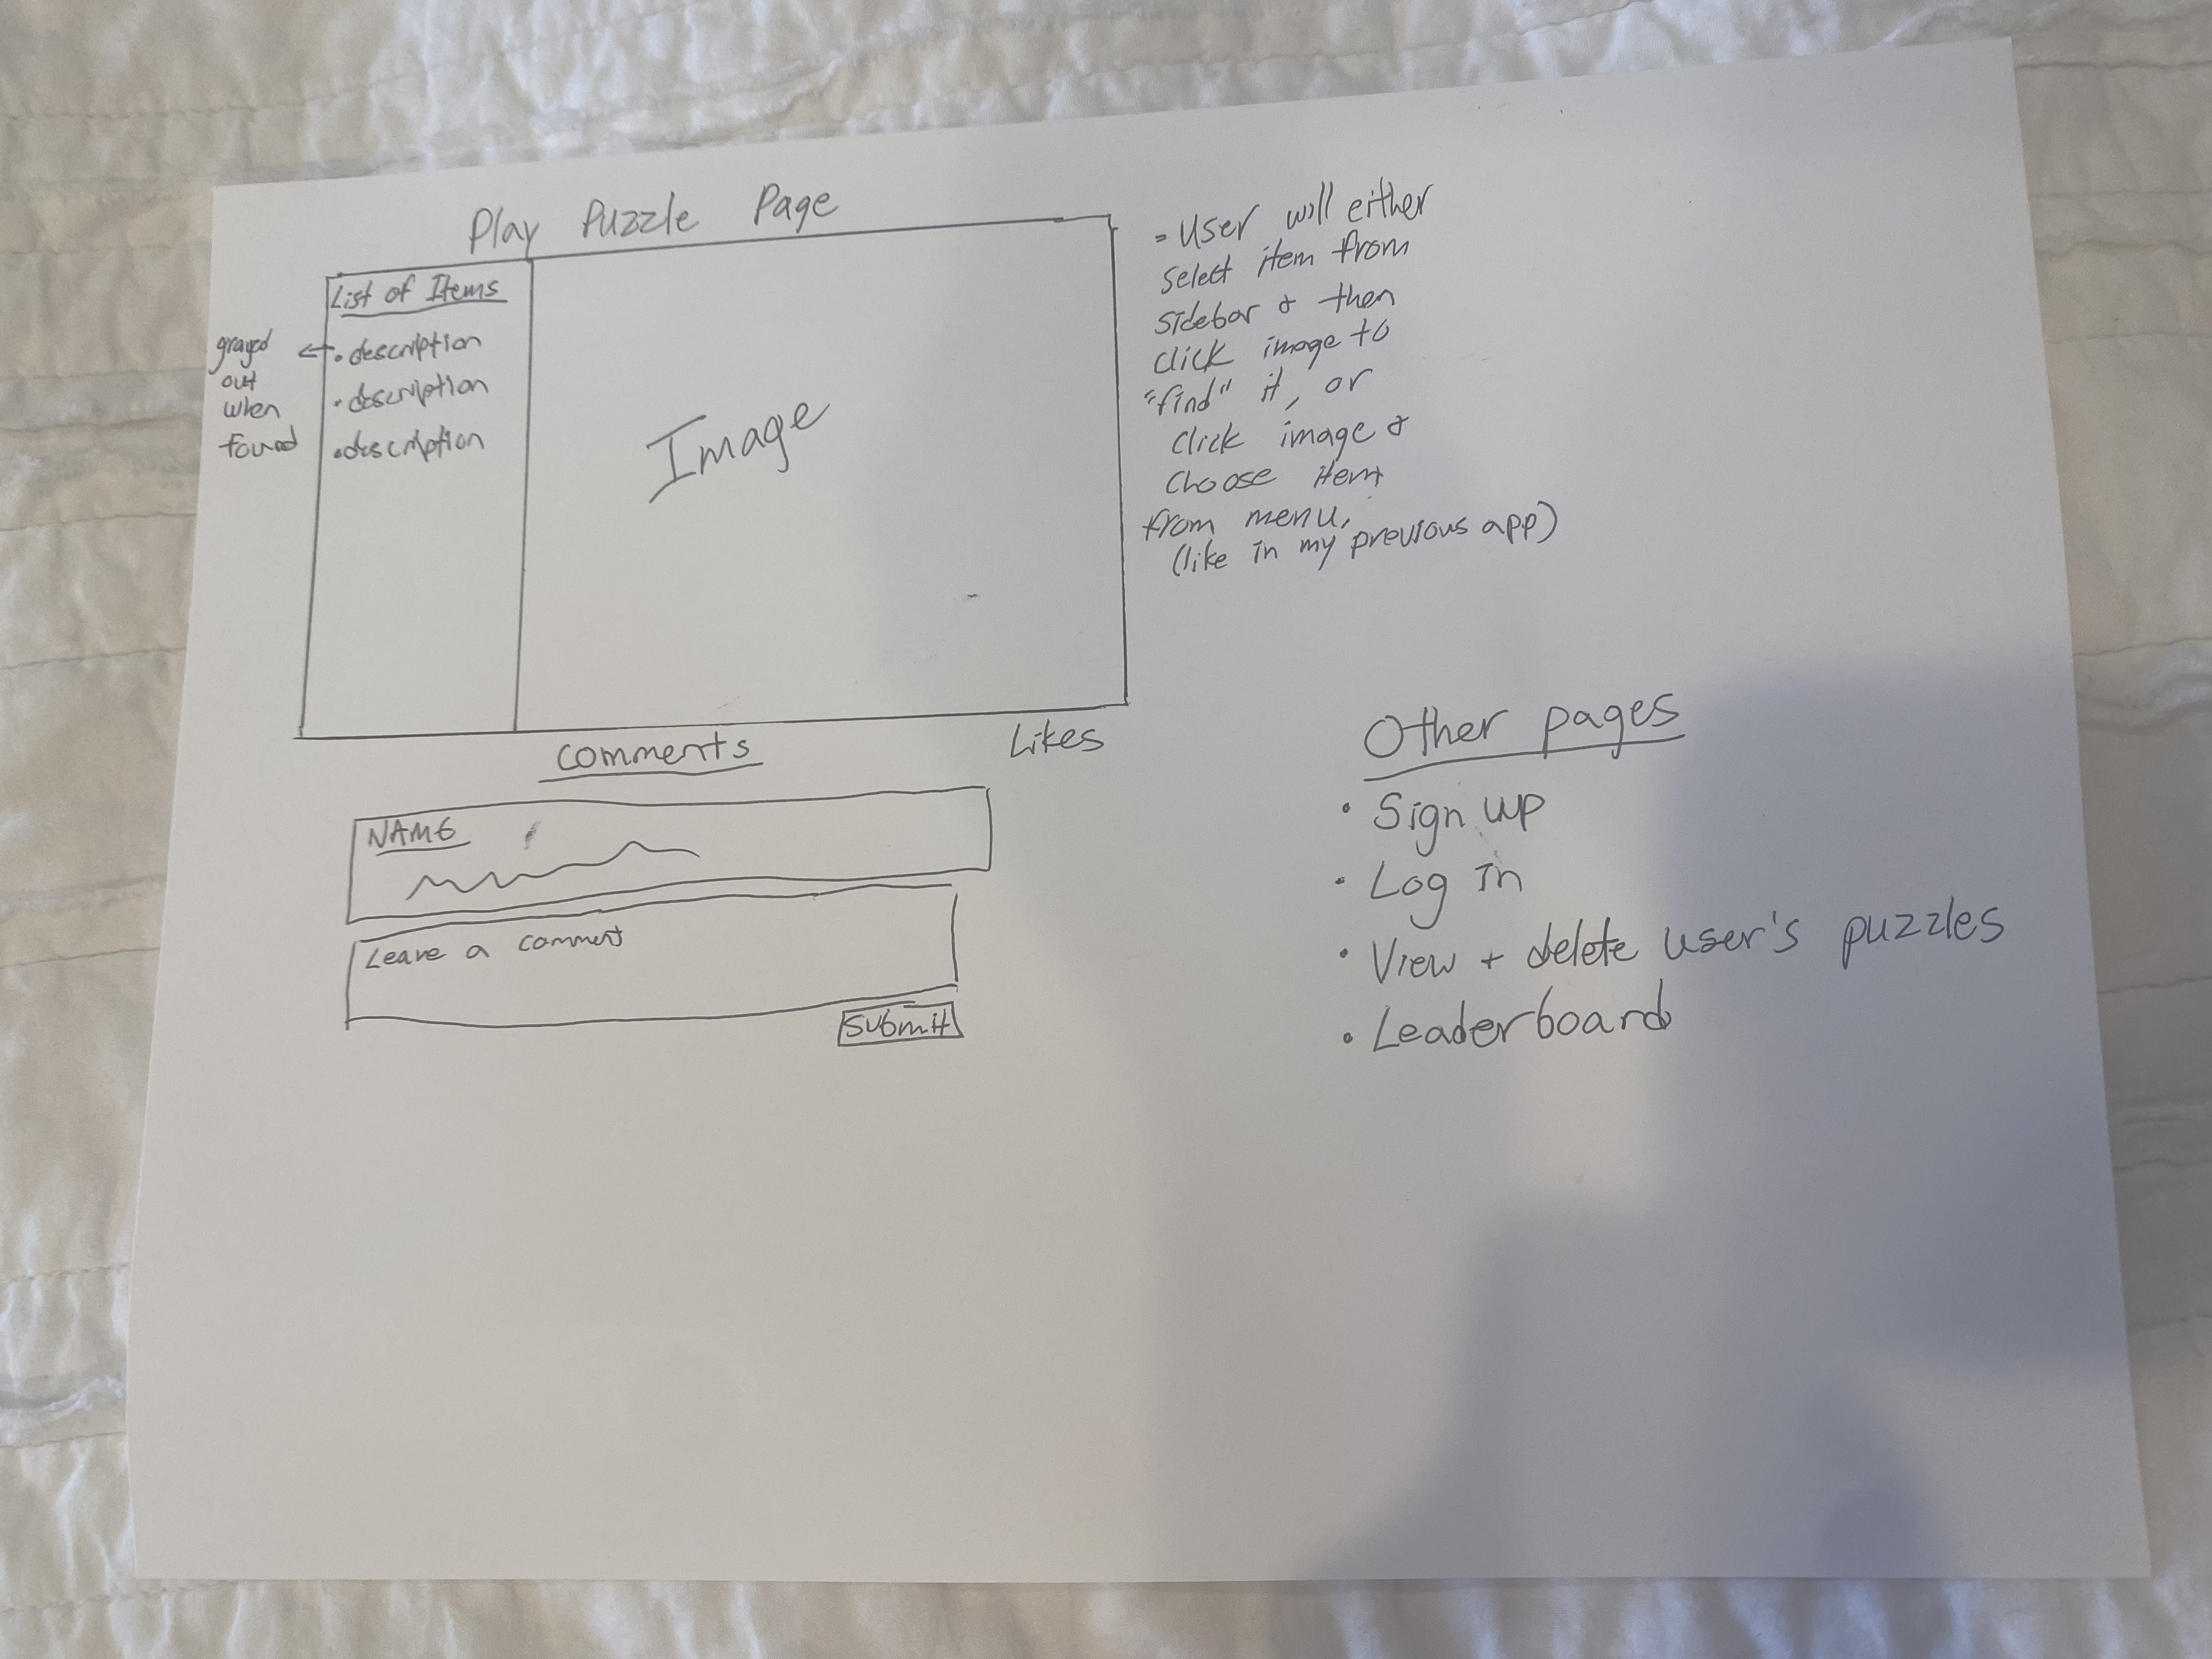 Play Puzzle Page
List of Items
• description
• description
• description
grayed
out
when
found
Image
- User will either
select item from
sidebar & then
click image to
"find" it, or
click image &
choose item
from menu,
(like in my previous app)
Comments
Likes
NAME
Leave a comment
Submit
Other pages
• Sign up
• Log in
• View + delete user's puzzles
• Leaderboard